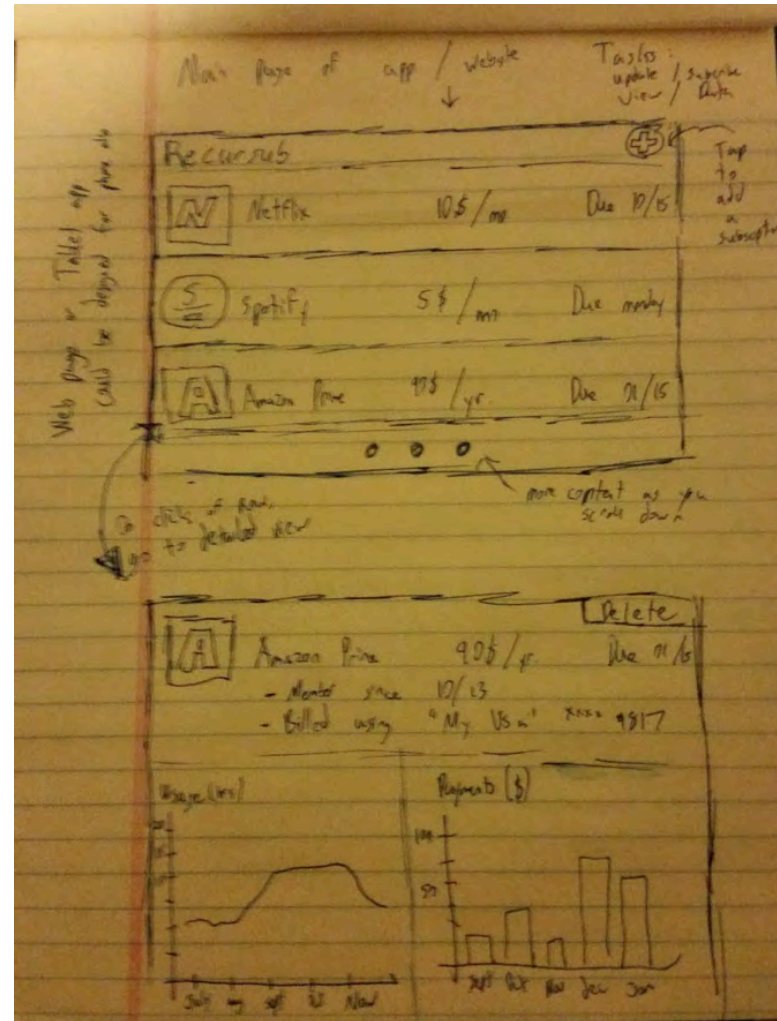 Main page of app / website
Tasks:
update / subscribe
view /
Web page or Tablet app
could be designed for phone also
Recursub
Tap
to
add
a
N Netflix 10$/mo Due 10/15
S Spotify 5$/mo Due monday
A Amazon Prime /yr. Due /15
more content as you
scroll down
On click of row,
go to detailed view
Delete
A Amazon Prime 90$/yr. Due
- Member since 10/13
- Billed using "My Visa" xxxx 9817
Usage (hrs)
July aug sept Oct Nov
Payments ($)
100
50
Sept Oct Nov Dec Jan